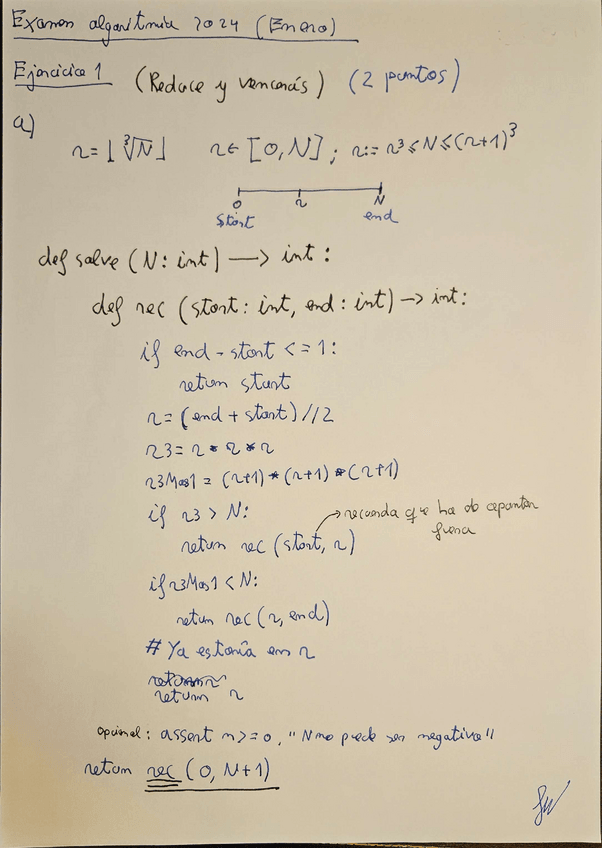 Examen algoritmia 2024 (Enero)
Ejercicio 1 (Reduce y vencerás) (2 puntos)
a)
r = ⌊∛N⌋ r ∈ [0, N] ; r := r³ ≤ N ≤ (r+1)³
0 r N
start end
def solve (N: int) —> int :
def rec (start: int, end: int) -> int:
if end - start <= 1:
return start
r = (end + start) // 2
r3 = r * r * r
r3Mas1 = (r+1) * (r+1) * (r+1)
if r3 > N:
→ recuerda que ha de apuntar
fuera
return rec (start, r)
if r3Mas1 < N:
return rec (r, end)
# Ya estaría en r
return r
opcional: assert n >= 0, "N no puede ser negativo"
return rec (0, N+1)